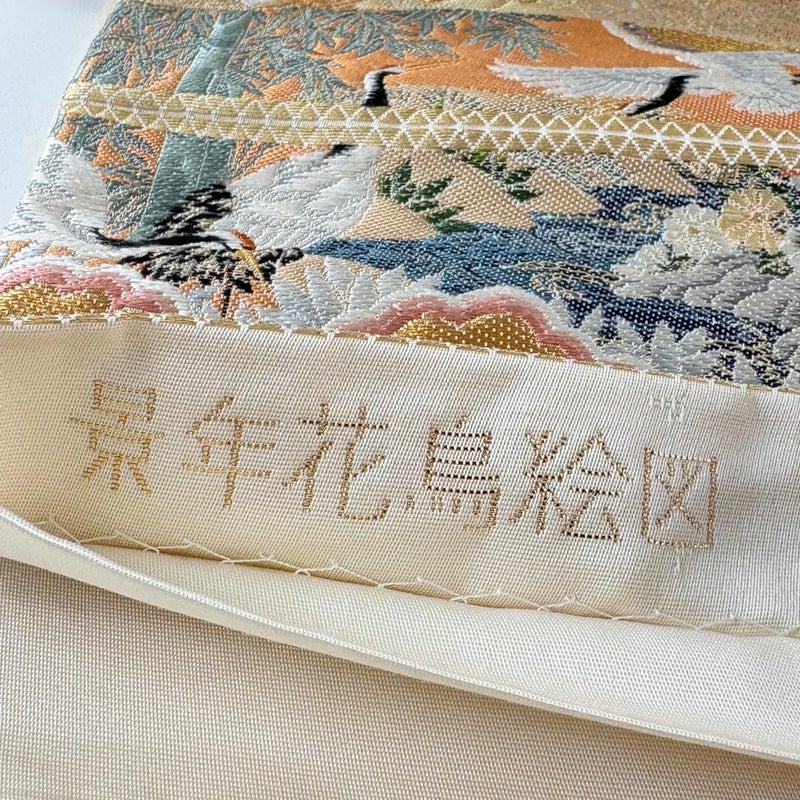 景年花鳥絵図